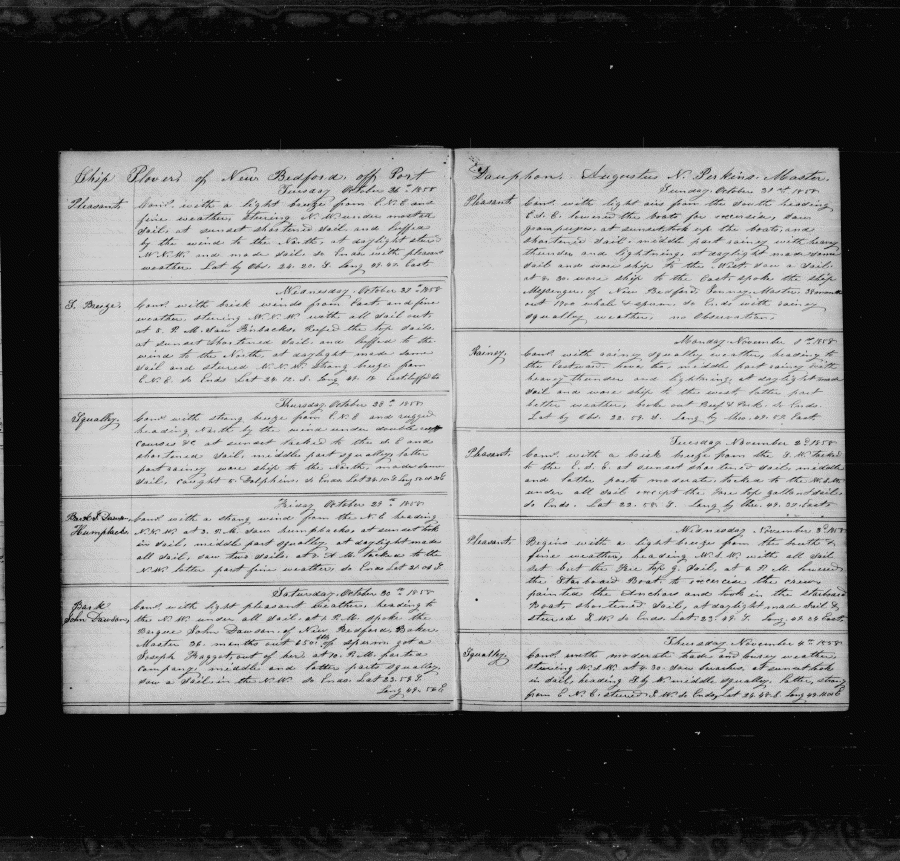 Ship Plover of New Bedford off Port
Tuesday October 26th 1858
Pleasant Com'd. with a light breeze from E.N.E and
fine weather, stering N.W under most
sail, at sunset shortened sail and luffed
by the wind to the North, at daylight sterd
N.N.W. and made sail, so Ends with pleasant
weather Lat by Obs. 24. 20. S. Long 49. East
Wednesday October 1858
S. Breeze. Com'd. with brisk winds from East and fine
weather, stering N.N.W with all sail out,
at 5. P.M. saw Finbacks. Reefed the top sails,
at sunset shortened sail, and luffed to the
wind to the North, at daylight made some
sail and sterd N.N.W. Strong breeze from
E.N.E. so Ends Lat 24. 12. S. Long 49. 12 East
Thursday October 28th 1858
Squally. Com'd with strong breeze from E.N.E and rugged
heading North by the wind under double reeft
courses &c at sunset tacked to the S.E and
shortened sail, middle part squally, latter
part rainy wore ship to the North, made some
sail, caught 5 Dolphins, so Ends Lat
Friday October 29th 1858
Humpbacks, Com'd. with a strong wind from the N.E heading
N.N.W. at 3. P.M. saw humpbacks, at sunset took
in sail, middle part squally, at daylight made
all sail, saw two sails, at A.M. tacked to the
N.W. latter part fine weather, so Ends Lat 24. 04 S.
Saturday October 30th 1858
Bark
John Dawson, Com'd. with light pleasant weather, heading to
the N.W. under all sail, at P.M. spoke the
Barque John Dawson of New Bedford, Baker
Master 36. months out 450 bbls of sperm, got a
Joseph Haggett out of her, at 10. P.M. parted
company, middle and latter parts squally,
saw a sail, in the N.W. so Ends. Lat 23. 58 S.
Long 49. 56 E
Dauphon. Augustus N. Perkins. Master.
Sunday October 31st 1858
Pleasant. Com'd. with light airs from the South heading
E.S.E. lowered the boats for excersise, saw
grampuses, at sunset took up the boats, and
shortened sail, middle part rainy with heavy
thunder and lightning, at daylight made some
sail and wore ship to the West. saw a sail.
at 8. 30. wore ship to the East. spoke the ship
Messenger of New Bedford Master 38 months
out 1200 whale & sperm, so Ends with rainey
squally weather, no Observation,
Monday November 1st 1858
Rainey. Com'd. with rainy squally weather, heading to
the Eastward, hove too, middle part rainy with
heavy thunder and lightning, at daylight made
sail and wore ship to the west, latter part
better weather, broke out Beef & Pork. so Ends.
Lat by Obs. 22. 59. S. Long by Chro. 49. 52 East
Tuesday November 2d 1858
Pleasant. Com'd. with a brisk breeze from the S.W. tacked
to the E.S.E at sunset shortened sail, middle
and latter parts moderate, tacked to the W.S.W.
under all sail except the Fore top gallant sail,
so Ends. Lat 22. 58. S. Long by Chro. 49. 30 East
Wednesday, November 3d 1858
Pleasant. Begins with a light breeze from the South &
fine weather, heading W.S.W. with all sail
set but the Fore top g. sail, at 2 P.M. lowered
the Starboard Boat to excercise the crew,
painted the Anchors and took in the starboard
Boat, shortened sail, at daylight made sail &
sterred S.W. so Ends. Lat. 23. 49. S. Long. 49. 29 East
Thursday November 4th 1858
Squally. Com'd. with moderate trade and breezy weather,
stering W.S.W. at 8. 30. saw barks, at sunset took
in sail, heading S by W. middle squally, latter, strong
from E.N.E. sterred S.W. so Ends, Lat